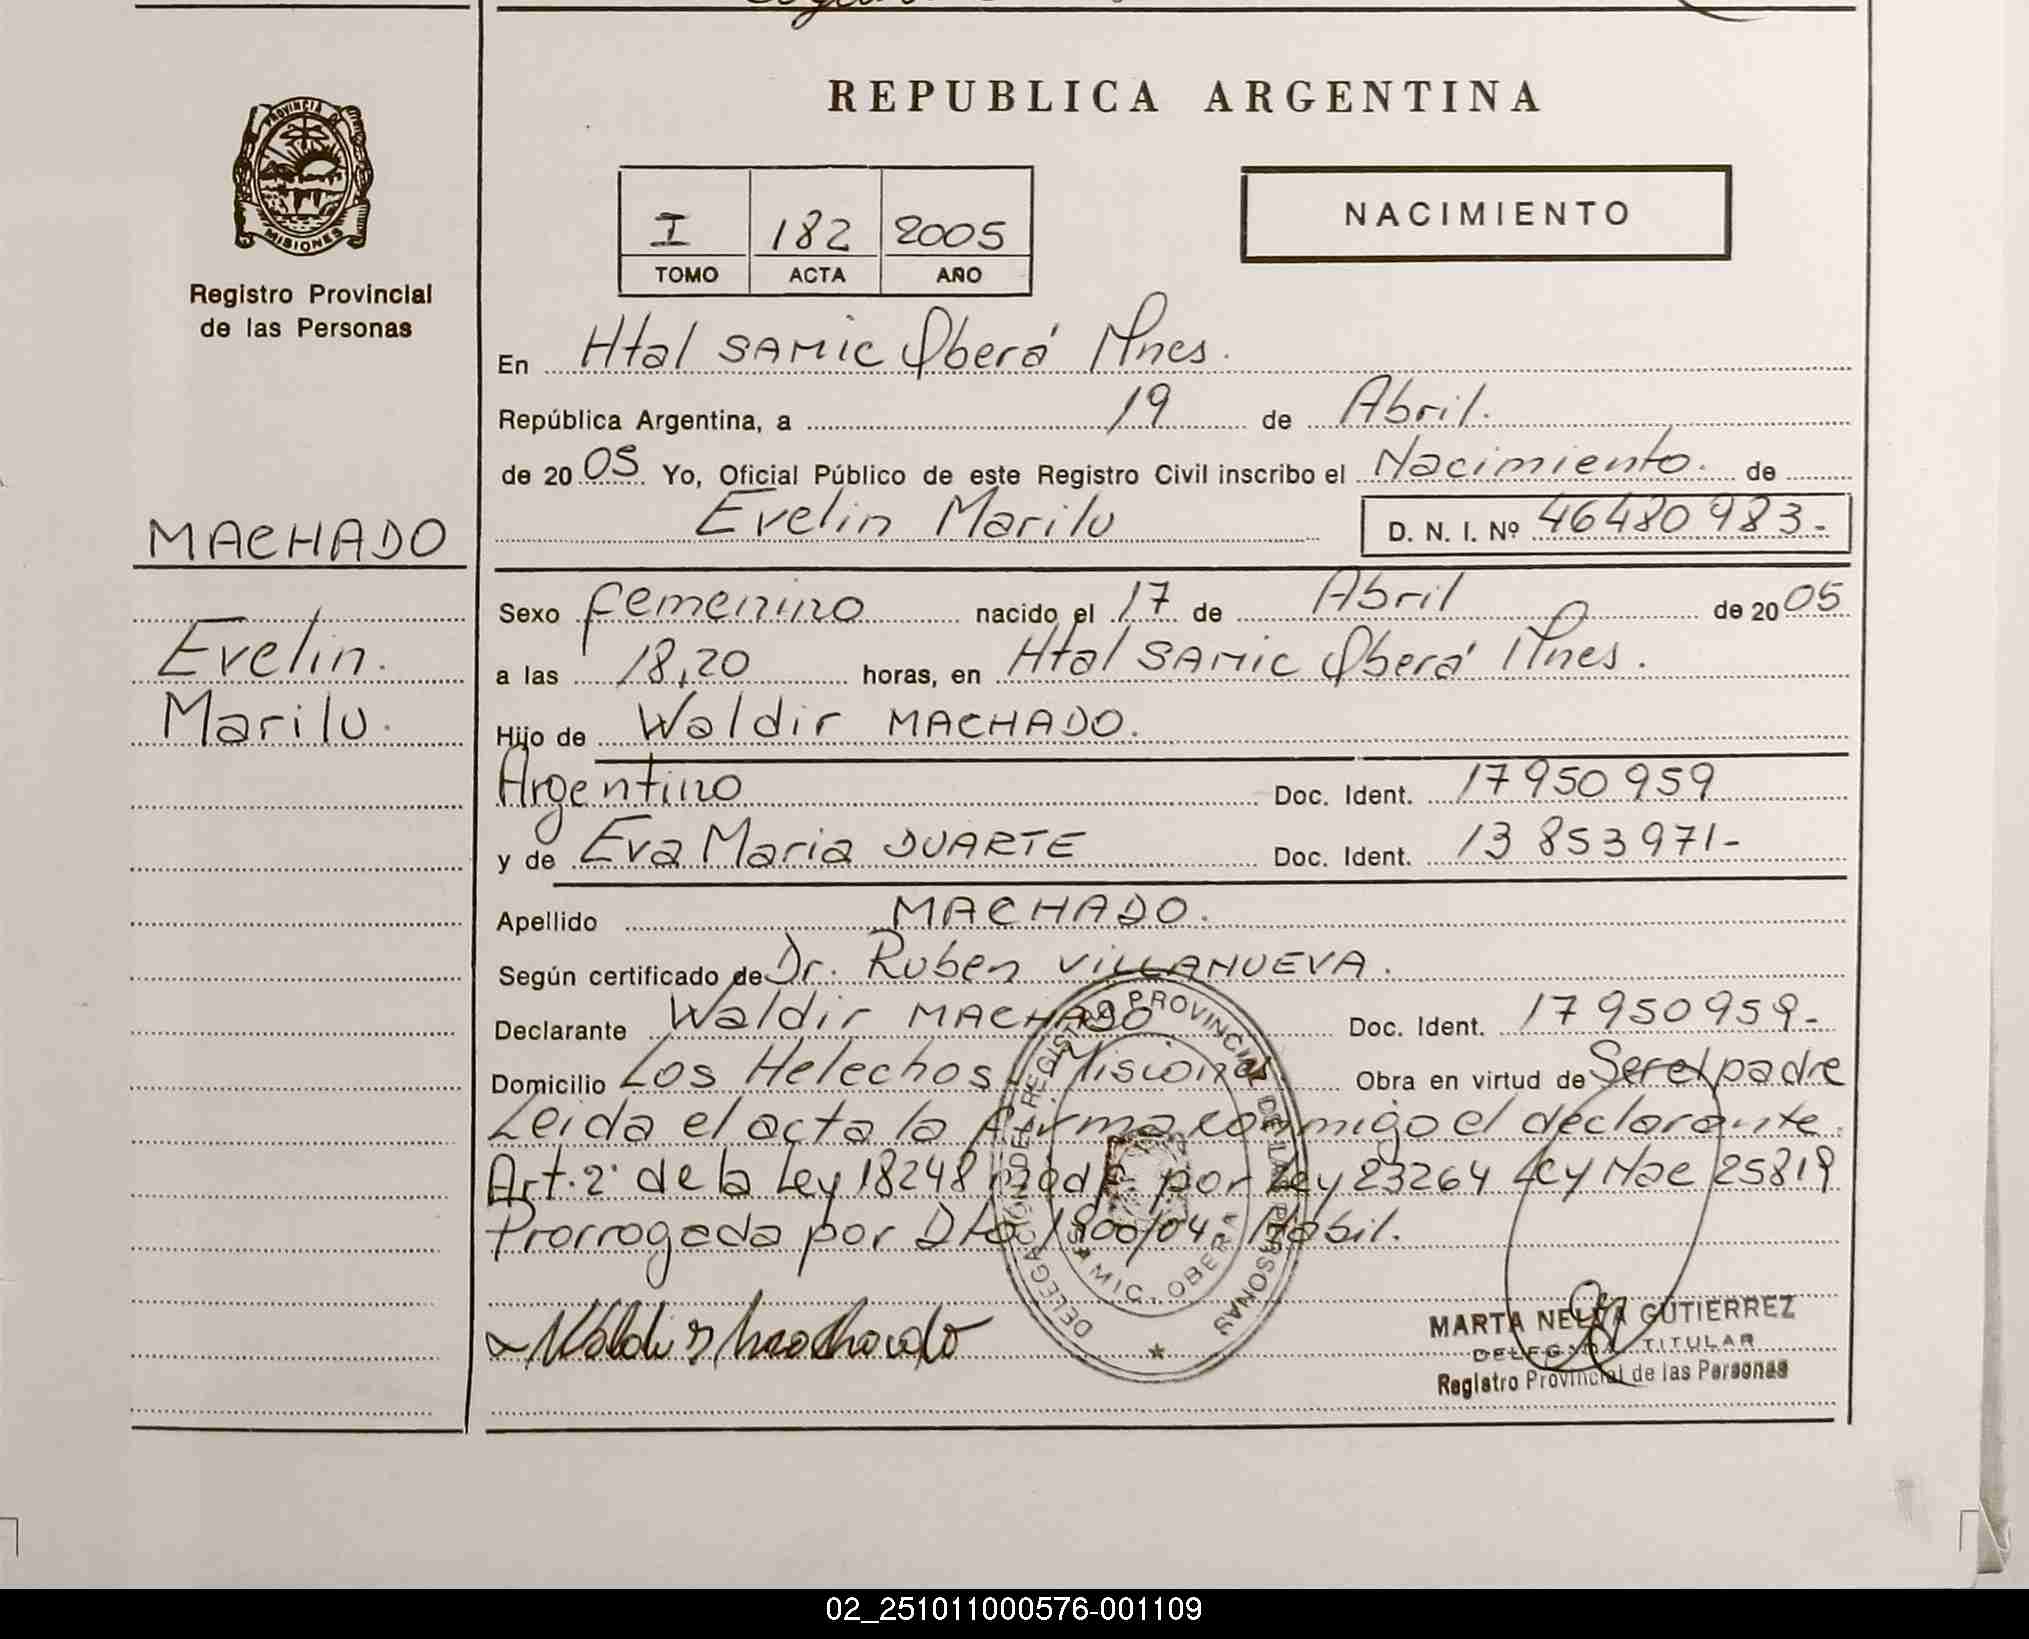 REPUBLICA ARGENTINA
PROVINCIA DE
MISIONES
Registro Provincial
de las Personas
I 182 2005
TOMO ACTA AÑO
NACIMIENTO
En Htal SAMIC Oberá Mnes.
República Argentina, a 19 de Abril.
de 20 05 Yo, Oficial Público de este Registro Civil inscribo el Nacimiento. de
Evelin Marilu D. N. I. Nº 46480983.-
MACHADO
Evelin.
Marilu.
Sexo femenino nacido el 17 de Abril de 20 05
a las 18,20 horas, en Htal SAMIC Oberá Mnes.
Hijo de Waldir MACHADO.
Argentino Doc. Ident. 17950959
y de Eva Maria DUARTE Doc. Ident. 13853971-
Apellido MACHADO.
Según certificado de Dr. Ruben VILLANUEVA.
Declarante Waldir MACHADO Doc. Ident. 17950959-
Domicilio Los Helechos Misiones Obra en virtud de Ser el padre
Leida el acta la firma conmigo el declarante.
Art. 2° de la Ley 18248 modf. por Ley 23264 Ley Nac 25819
Prorrogada por Dto 1800/04. Habil.
DELEGACION DEL REGISTRO PROVINCIAL DE LAS PERSONAS
SAMIC - OBERA
Waldir Machado
MARTA NELVA GUTIERREZ
DELEGADA TITULAR
Registro Provincial de las Personas
02_251011000576-001109